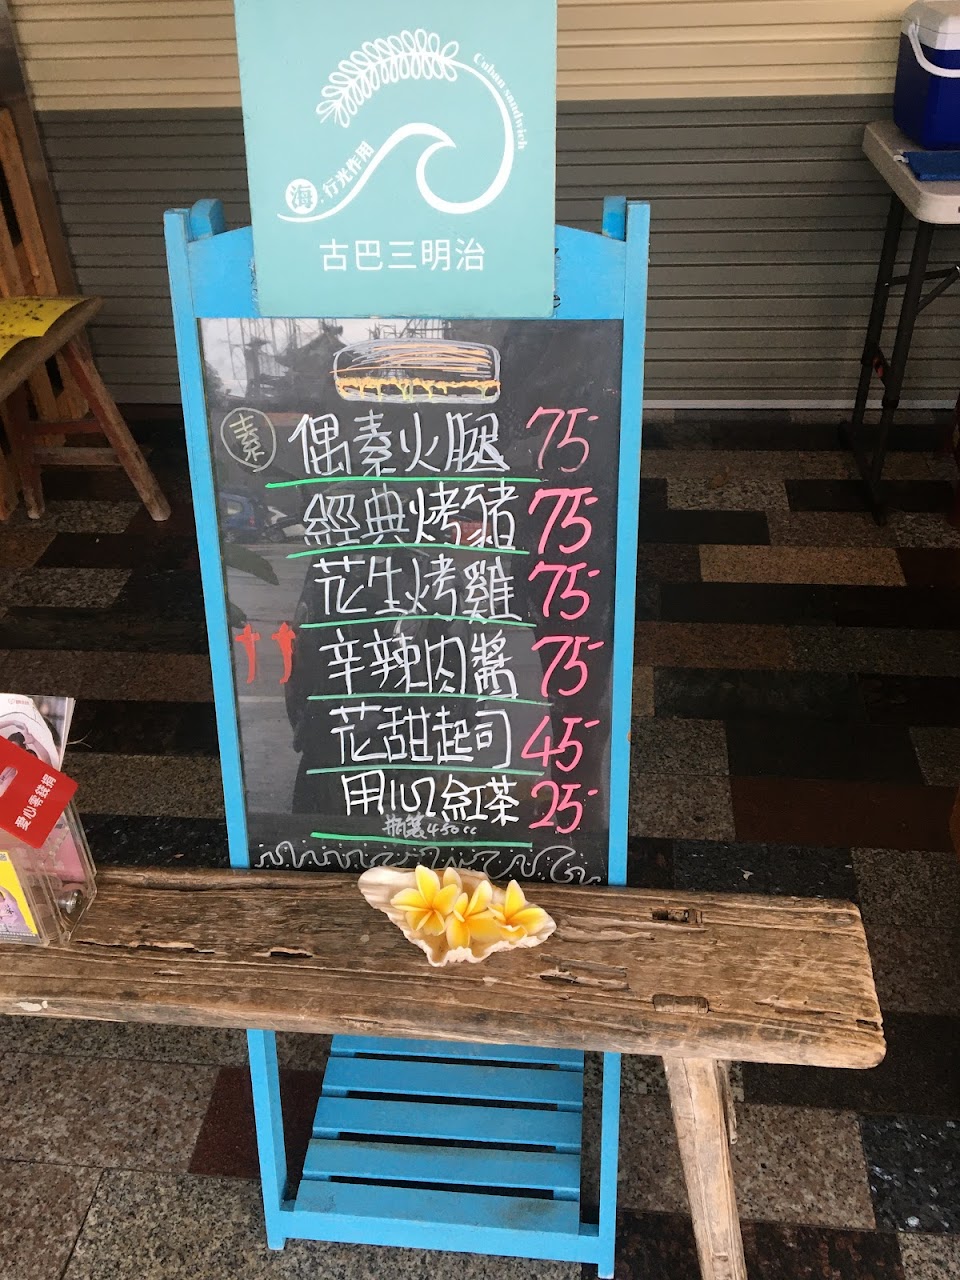 Cuban sandwich
海,行光作用
古巴三明治
素 偶素火腿 75-
經典烤豬 75-
花生烤雞 75-
辛辣肉醬 75-
花甜起司 45-
用心紅茶 25-
瓶裝450cc
愛心零錢捐